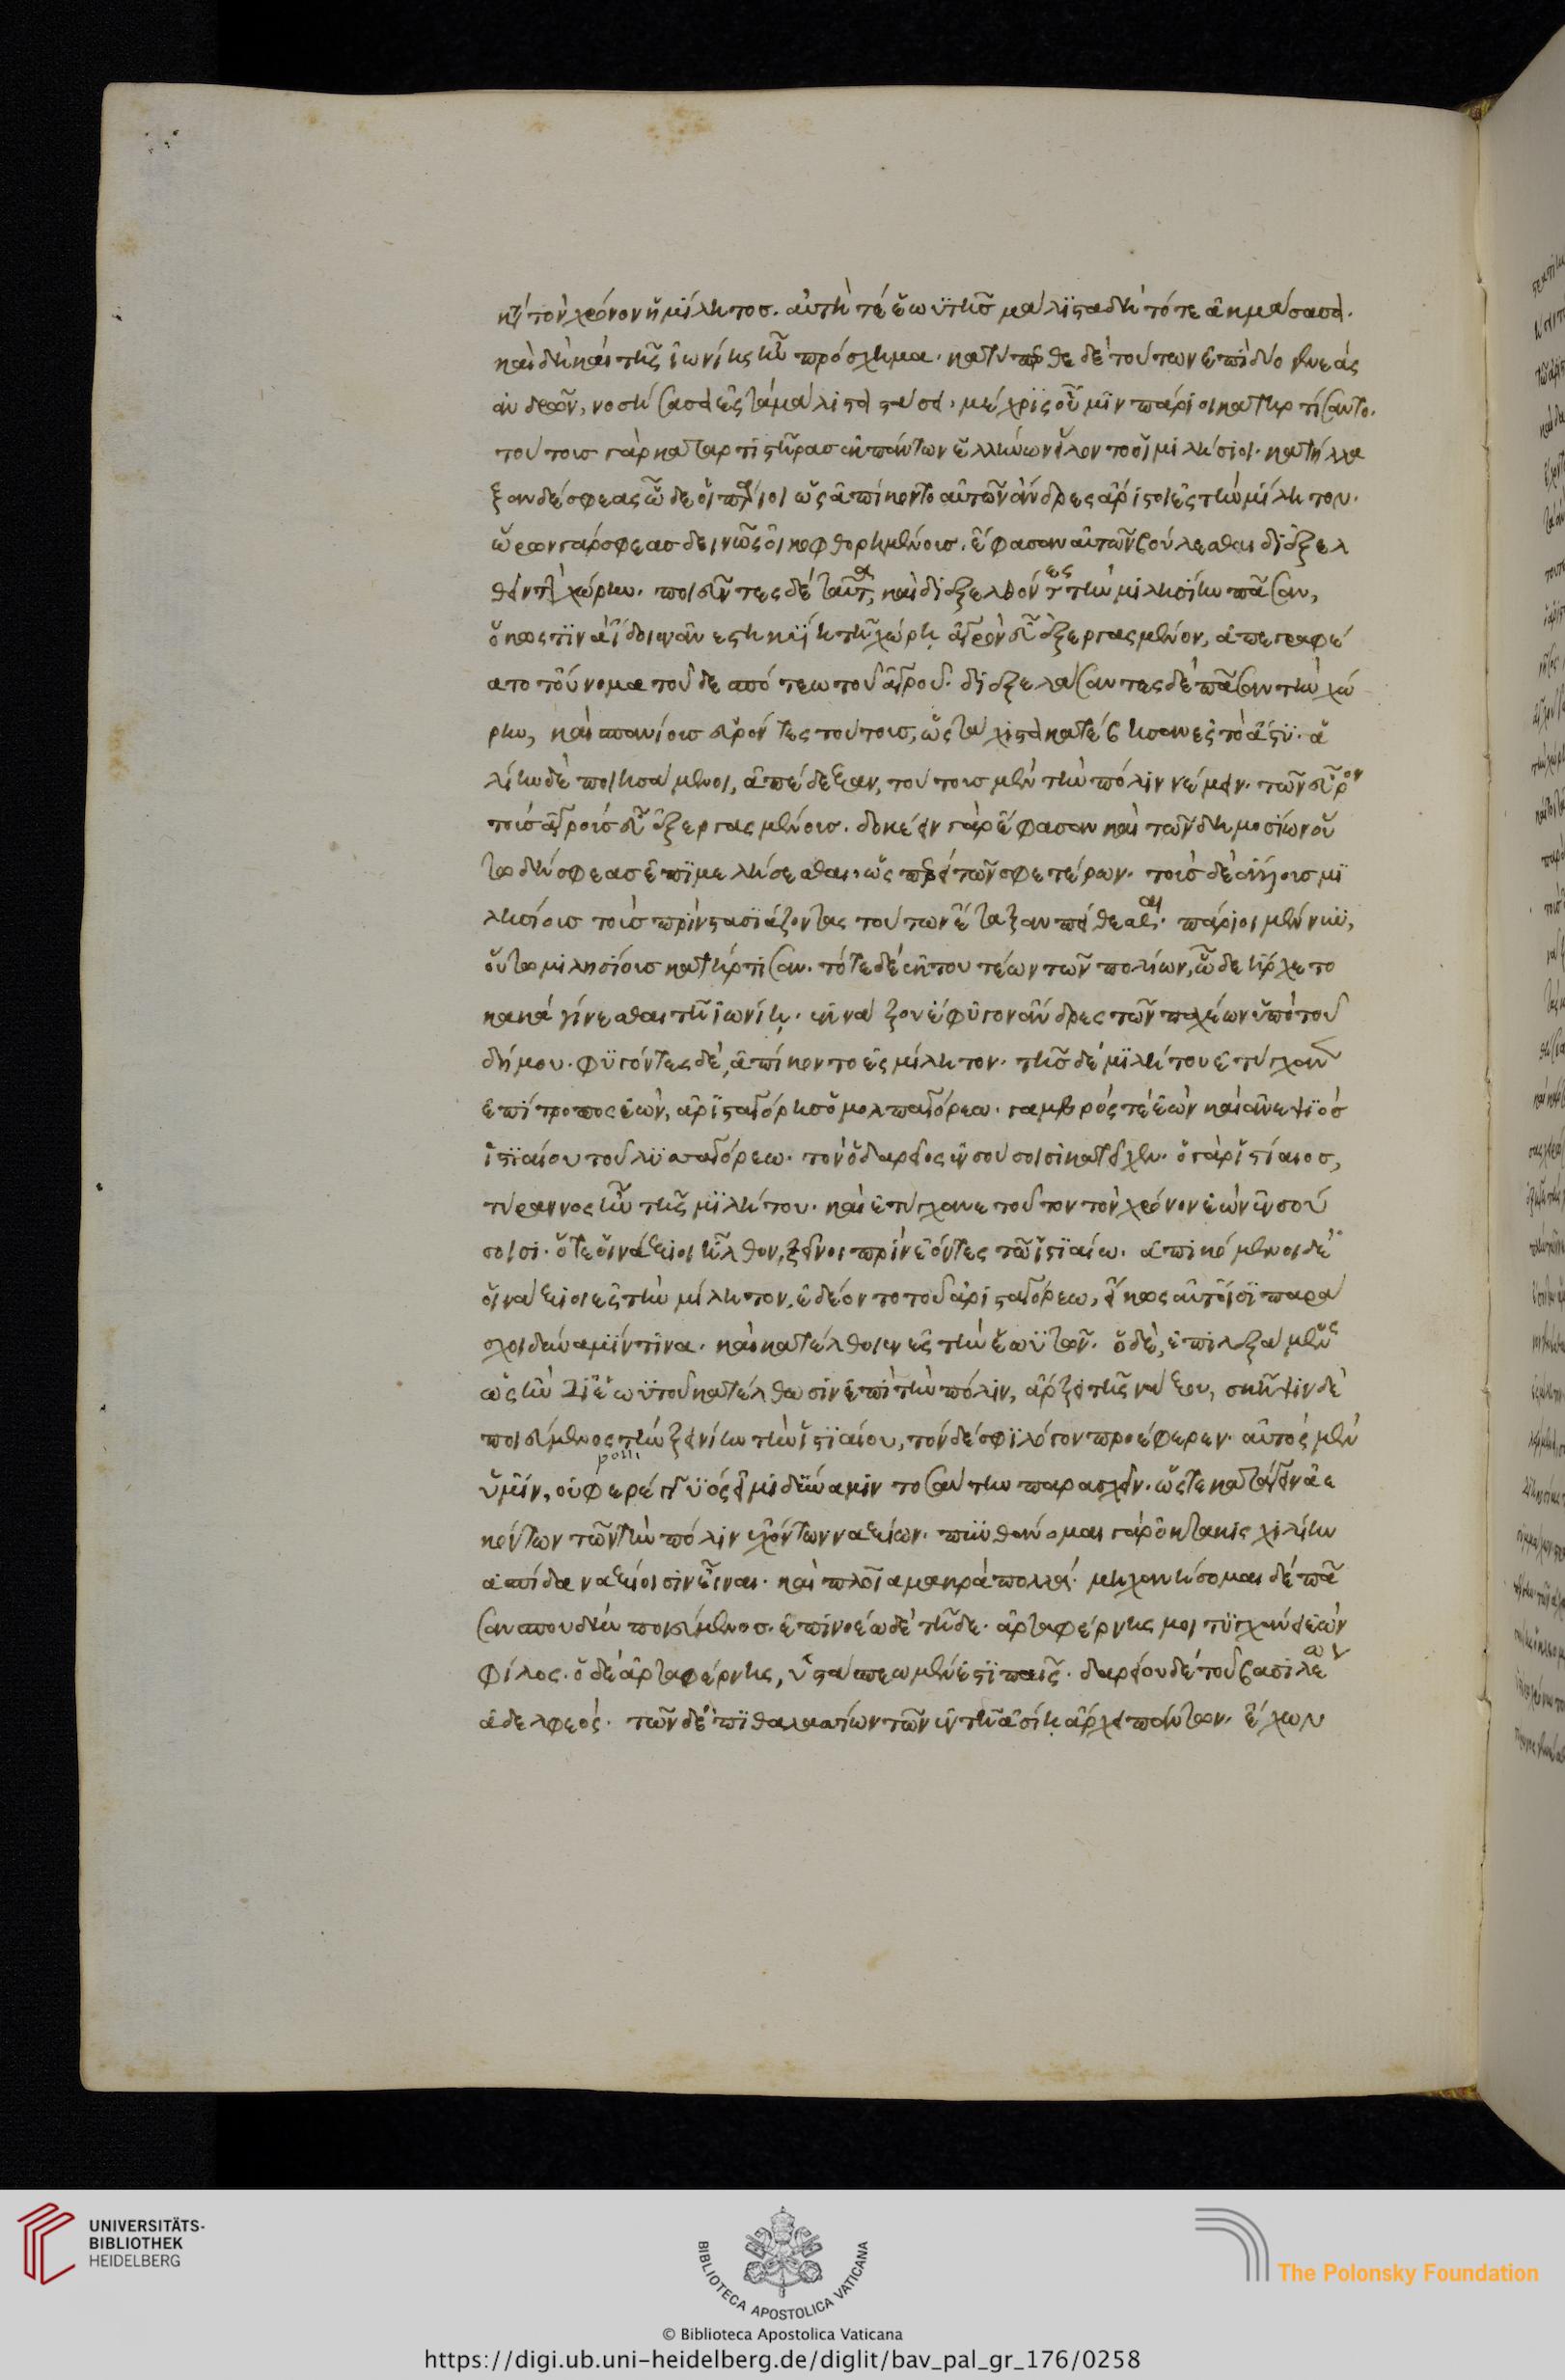 κατὰ τὸν χρόνον ἡ μίλητοσ. αὐτή τε ἑωυτῆσ μάλιστα δὴ τότε ἀκμάσασα.
καὶ δὴ καὶ τῆς ἰωνίης ἦν πρόσχημα. κατύπερθε δὲ τούτων ἐπὶ δύο γενεὰς
ἀνδρῶν, νοσήσασα ἐς τὰ μάλιστα στάσι. μέχρις οὗ μιν πάριοι κατήρτισαν το.
τούτουσ γὰρ καταρτιστῆρασ ἐκ πάντων ἑλλήνων εἵλοντο οἱ μιλήσιοι. κατήλλα
ξαν δέ σφεας ὧδε οἱ πάριοι ὡς ἀπίκοντο αὐτῶν ἄνδρες ἄριστοι ἐς τὴν μίλητον.
ὥρων γάρ σφεασ δεινῶς οἰκοφθορημένουσ. ἔφασαν αὐτῶν βούλεσθαι διεξελ
θεῖν τὴν χώρην. ποιεῦντες δὲ ταῦτα, καὶ διεξελθόντες τὴν μιλησίην πᾶσαν,
ὅκως τινὰ ἴδοιεν ἀνεστηκυίη τῆ χώρη ἀγρὸν εὖ ἐξεργασμένον, ἀπεγραφέ
ατο τὸ οὔνομα τοῦ δεσπότεω τοῦ ἀγροῦ. διεξελάσαντες δὲ πᾶσαν τὴν χώ
ρην, καὶ σπανίουσ εὑρόντες τούτουσ, ὡς τάχιστα κατέβησαν ἐς τὸ ἄστυ. ἁ
λίην δὲ ποιησάμενοι, ἀπέδεξαν, τούτουσ μὲν τὴν πόλιν νέμειν. τῶν εὗρον
τοὺσ ἀγροὺσ εὖ ἐξεργασμένουσ. δοκέειν γὰρ ἔφασαν καὶ τῶν δημοσίων οὕ
τω δή σφεασ ἐπιμελήσεσθαι, ὥσπερ τῶν σφετέρων. τοὺσ δὲ ἄλλουσ μι
λησίουσ τοὺσ πρὶν στασιάζοντας τούτων ἔταξαν πείθεσθαι. πάριοι μέν νυν,
οὕτω μιλησίουσ κατήρτισαν. τότε δὲ ἐκ τουτέων τῶν πολίων, ὧδε ἤρχετο
κακὰ γίνεσθαι τῆ ἰωνίη. ἐκ νάξου ἔφυγον ἄνδρες τῶν παχέων ὑπὸ τοῦ
δήμου. φυγόντες δὲ, ἀπίκοντο ἐς μίλητον. τῆσ δὲ μιλήτου ἐτύγχανε
ἐπίτροπος ἐὼν, ἀρισταγόρησ ὁ μολπαγόρεω. γαμβρός τε ἐὼν καὶ ἀνεψιὸσ
ἱστιαίου τοῦ λυσαγόρεω. τὸν ὁ δαρεῖος ἐν σούσοισι κατεῖχεν. ὁ γὰρ ἱστίαιοσ,
τύραννος ἦν τῆς μιλήτου. καὶ ἐτύγχανε τοῦτον τὸν χρόνον ἐὼν ἐν σού
σοισι. ὅτε οἱ νάξιοι ἦλθον, ξεῖνοι πρὶν ἐόντες τῶ ἱστιαίω. ἀπικόμενοι δὲ
οἱ νάξιοι ἐς τὴν μίλητον, ἐδέοντο τοῦ ἀρισταγόρεω, εἴ κως αὐτοῖσι παρά
σχοι δύναμίν τινα. καὶ κατέλθοιεν ἐς τὴν ἑωυτῶν. ὁ δὲ, ἐπιλεξάμενος
ὡς ἢν δι ἑωυτοῦ κατέλθωσιν ἐπὶ τὴν πόλιν, ἄρξει τῆς νάξου, σκῆψιν δὲ
ποιεύμενος τὴν ξεινίην τὴν ἱστιαίου, τόνδε σφι λόγον προέφερεν. αὐτὸς μὲν
ὑμῖν, οὐ φερέγγυός εἰμι δύναμιν τοσαύτην παρασχεῖν. ὥστε κατάγειν ἀε
κόντων τῶν τὴν πόλιν ἐχόντων ναξίων. πυνθάνομαι γὰρ ὀκτακισχιλίην
ἀσπίδα ναξίοισιν εἶναι. καὶ πλοῖα μακρὰ πολλά. μηχανήσομαι δὲ πᾶ
σαν σπουδὴν ποιεύμενοσ. ἐπινοέω δὲ τῆδε. ἀρταφέρνης μοι τυγχάνει ἐὼν
φίλος. ὁ δὲ ἀρταφέρνης, ὑστάσπεω μὲν ἐστι παῖς. δαρείου δὲ τοῦ βασιλέω
ἀδελφεός. τῶν δ ἐπιθαλασσίων τῶν ἐν τῆ ἀσίη ἄρχει πάντων. ἔχων
UNIVERSITÄTS-
BIBLIOTHEK
HEIDELBERG
BIBLIOTECA APOSTOLICA VATICANA
The Polonsky Foundation
© Biblioteca Apostolica Vaticana
https://digi.ub.uni-heidelberg.de/diglit/bav_pal_gr_176/0258